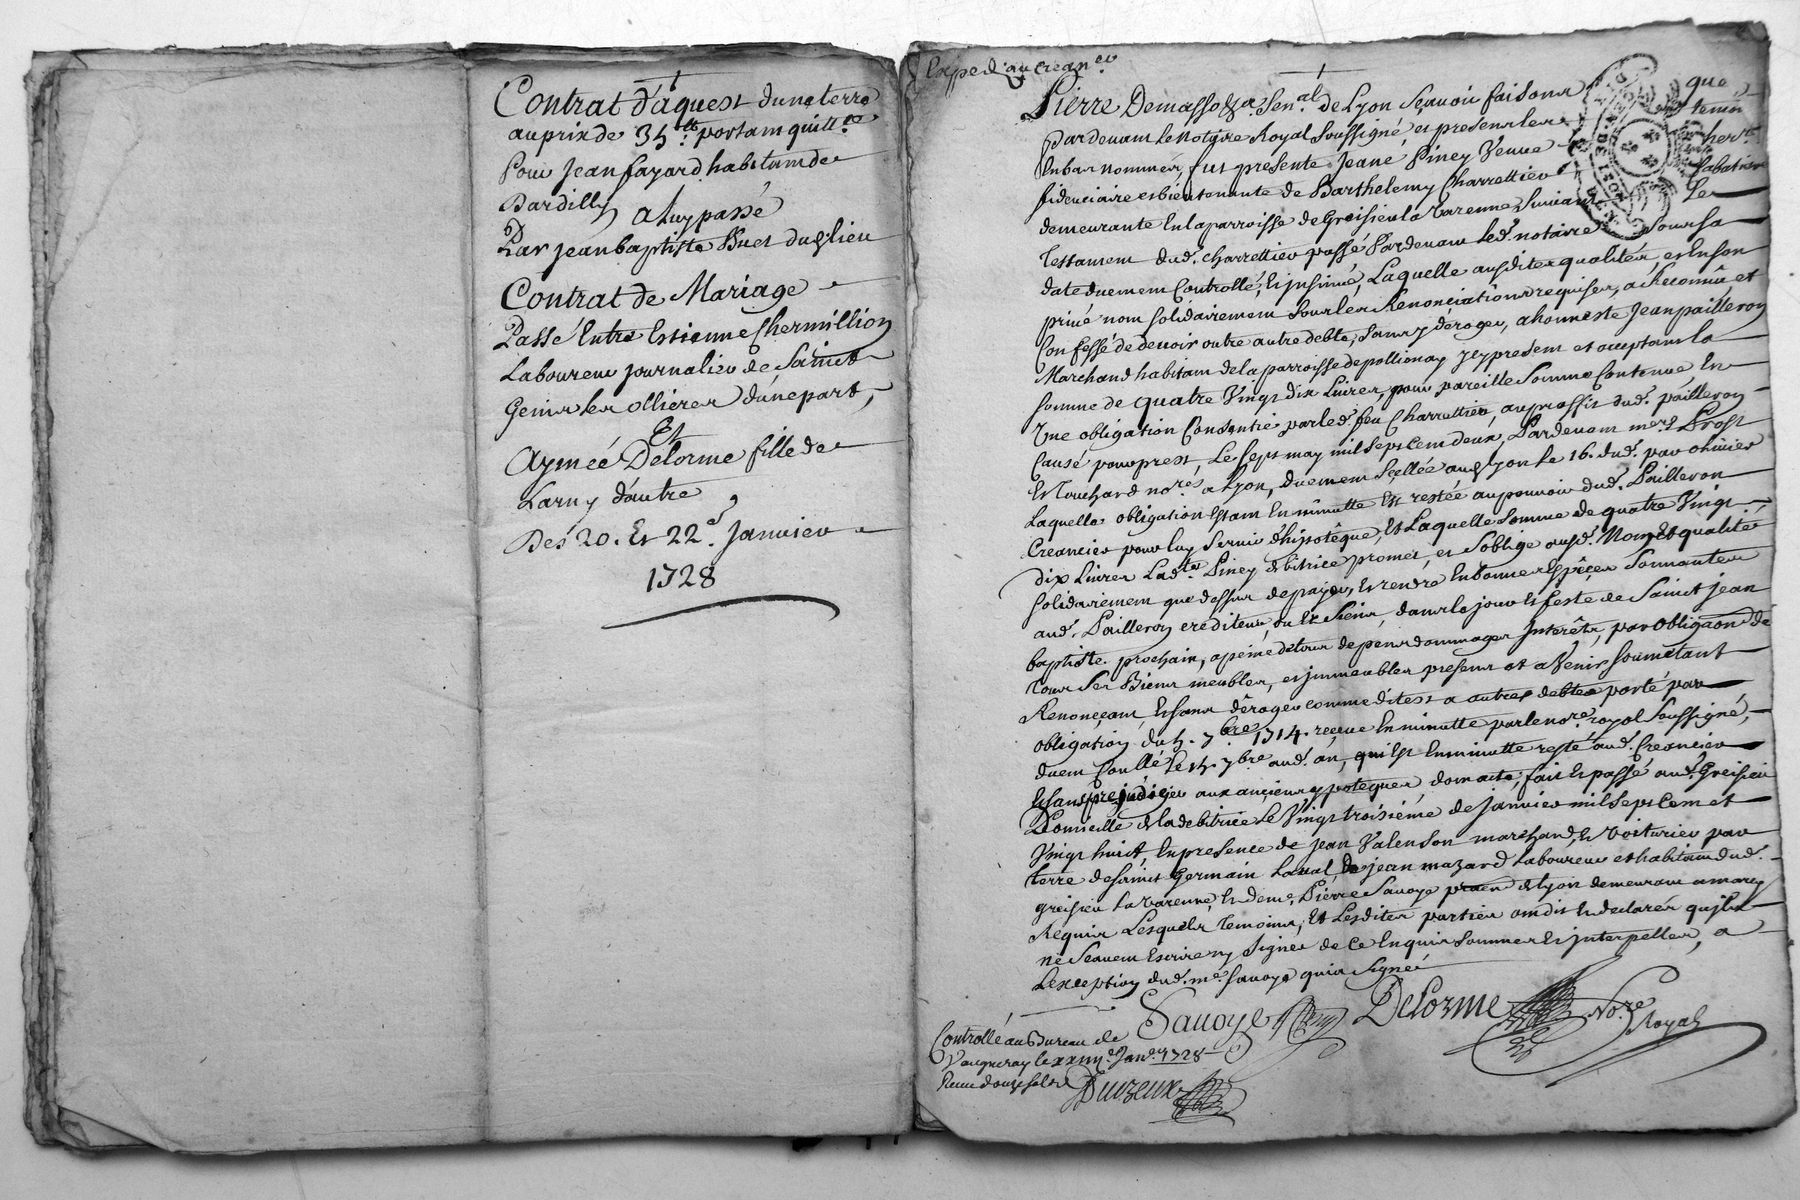 Contrat d'aquest dune terre
au prix de 35.tt portant quitt.ce
Pour Jean fayard habitant de
Dardilly a luy passé
Par Jean baptiste Buet dud. lieu
Contrat de Mariage
Passé Entre Estienne Chermillion
Laboureur journalier de Sainct
Genis les ollieres d'une part,
Et
Aymée Delorme fille de
Larny d'autre
Des 20. Et 22.e Janvier
1728
Exped. au crean.er
Pierre Demasso &a Sen.al de Lyon Sçavoir faisons que
Pardevant le Notaire Royal Soussigné et presents les temoins
En bas nommez, fut presente Jeane Piney Veuve her.te
fideuciaire et bientenante de Barthelemy Charrettier
demeurante En la parroisse de Greisieu la Varenne Suivant Le
Testament dud. Charrettier passé Pardevant led. notaire Sous sa
date duement Controllé, et insinué, Laquelle ausdites qualités, et En son
privé nom solidairement Sous les Renonciations requises, a Reconnu et
Confessé de devoir outre autre debte, Sans y déroger, a honneste Jean pailleron
Marchand habitant de la parroisse de pollionay jcy present et acceptant la
somme de quatre Vingt dix Livres, pour pareille Somme Contenue En
Une obligation Consentie par led. feu Charrettier, au proffit dud. pailleron
Causé pour prest, Le Sept may mil sept cent deux, Pardevant me.s Prost
Et Touchard no.res a Lyon, duement Scellée aud. Lyon le 16. dud. par ollivier
Laquelle obligation Estant En minutte Est restée au pouvoir dud. Pailleron
Creancier pour luy Servir d'hipotêque, Et Laquelle Somme de quatre Vingt
dix Livres Lad.te Piney debitrice promet, et s'oblige ausd. Noms et qualités
solidairement que dessus de payer, et rendre En bonnes Espêces Sonnantes
aud. Pailleron crediteur, ou Es Siens, dans le jour et feste de Sainct Jean
baptiste prochain, a peine de tous depens dommages Interêts, par obligaon de
tous Ses Biens meubles, et jmmeubles presents et a Venir Soumetant
Renonçant, Et sans dêroger comme dit est a autres debtes porté par
obligation du 7bre 1714. reçue En minutte par le no.re royal Soussigné,
duem. Conllé le 7bre aud. an, qui Est En minutte resté aud. Creancier
Et sans prejudicier aux anciens ypoteques dont acte, fait Et passé aud. Greisieu
Domicille de la debitrice Le Vingt troisiéme de janvier mil Sept Cent et
Vingt huict, En presence de Jean Valenson marchand, et Voiturier par
terre de Sainct Germain Laval, De jean mazard Laboureur et habitant dud.
greisieu La Varenne, Et de me Pierre Savoye de Lyon demeurant a marcy
Requis Lesquels Temoins, Et Lesdites parties ont dit Et declaré qu'jls
ne Scavent Escrire ny Signer de Ce Enquis Sommés Et jnterpellés, a
L'exception dud. me. Savoye qui a Signé
Savoye Delorme No.re
Royal
Controllé au Bureau de
Vaugneray le xxiiij.e Janv.er 1728
Receu douze sols
Duvreux